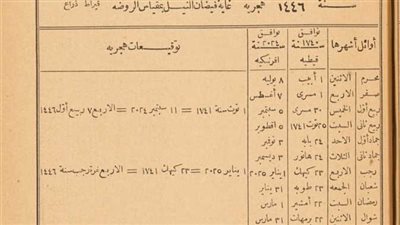 سنة ١٤٤٦ هجرية غاية فيضان النيل بمقياس الروضة قيراط ذراع
أوائل أشهرها
توافق سنة ١٧٤٠ قبطية
توافق سنة ٢٠٢٤ افرنكية
توقيعات هجرية
محرم الاثنين ١ أبيب ٨ يوليه
صفر الاربع ١ مسرى ٧ أغسطس
ربيع أول الخميس ٣٠ مسرى ٥ سبتمبر ١ توت سنة ١٧٤١ = ١١ سبتمبر ٢٠٢٤ = الاربع ٧ ربيع أول ١٤٤٦
ربيع ثانى السبت ٢٥ توت ١٧٤١ ٥ اكتوبر
جماد أول الاحد ٢٤ بابه ٣ نوفمبر
جماد ثانى الثلاث ٢٤ هاتور ٣ ديسمبر
رجب الاربع ٢٣ كيهك ١ يناير ٢٠٢٥ ١ يناير ٢٠٢٥ = ٢٣ كيهك ١٧٤١ = الاربع غرة رجب سنة ١٤٤٦
شعبان الجمعه ٢٣ طوبه ٣١ يناير
رمضان السبت ٢٢ أمشير ١ مارس
شوال الاثنين ٢٢ برمهات ٣١ مارس